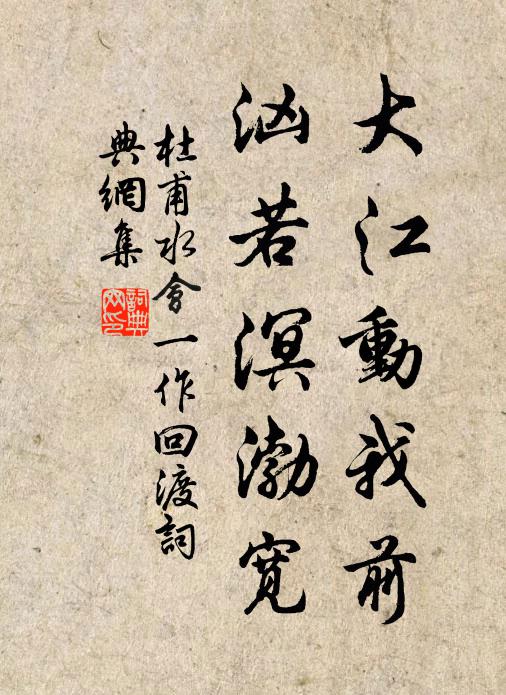 大江動我前
洶若溟渤寬
杜甫水會一作回渡詞
典網集
詞典網印